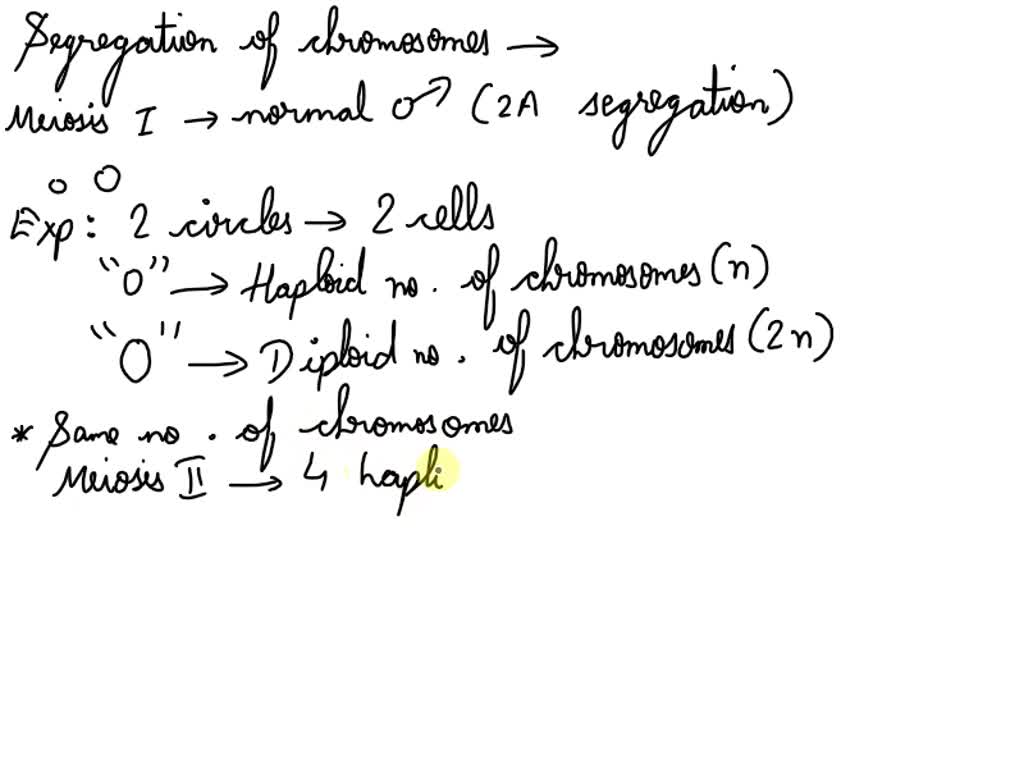 Segregation of chromosomes →
Meiosis I → normal ♂ (2A segregation)
o O
Exp: 2 circles → 2 cells
"o" → Haploid no. of chromosomes (n)
"O" → Diploid no. of chromosomes (2n)
* Same no. of chromosomes
Meiosis II → 4 hapli